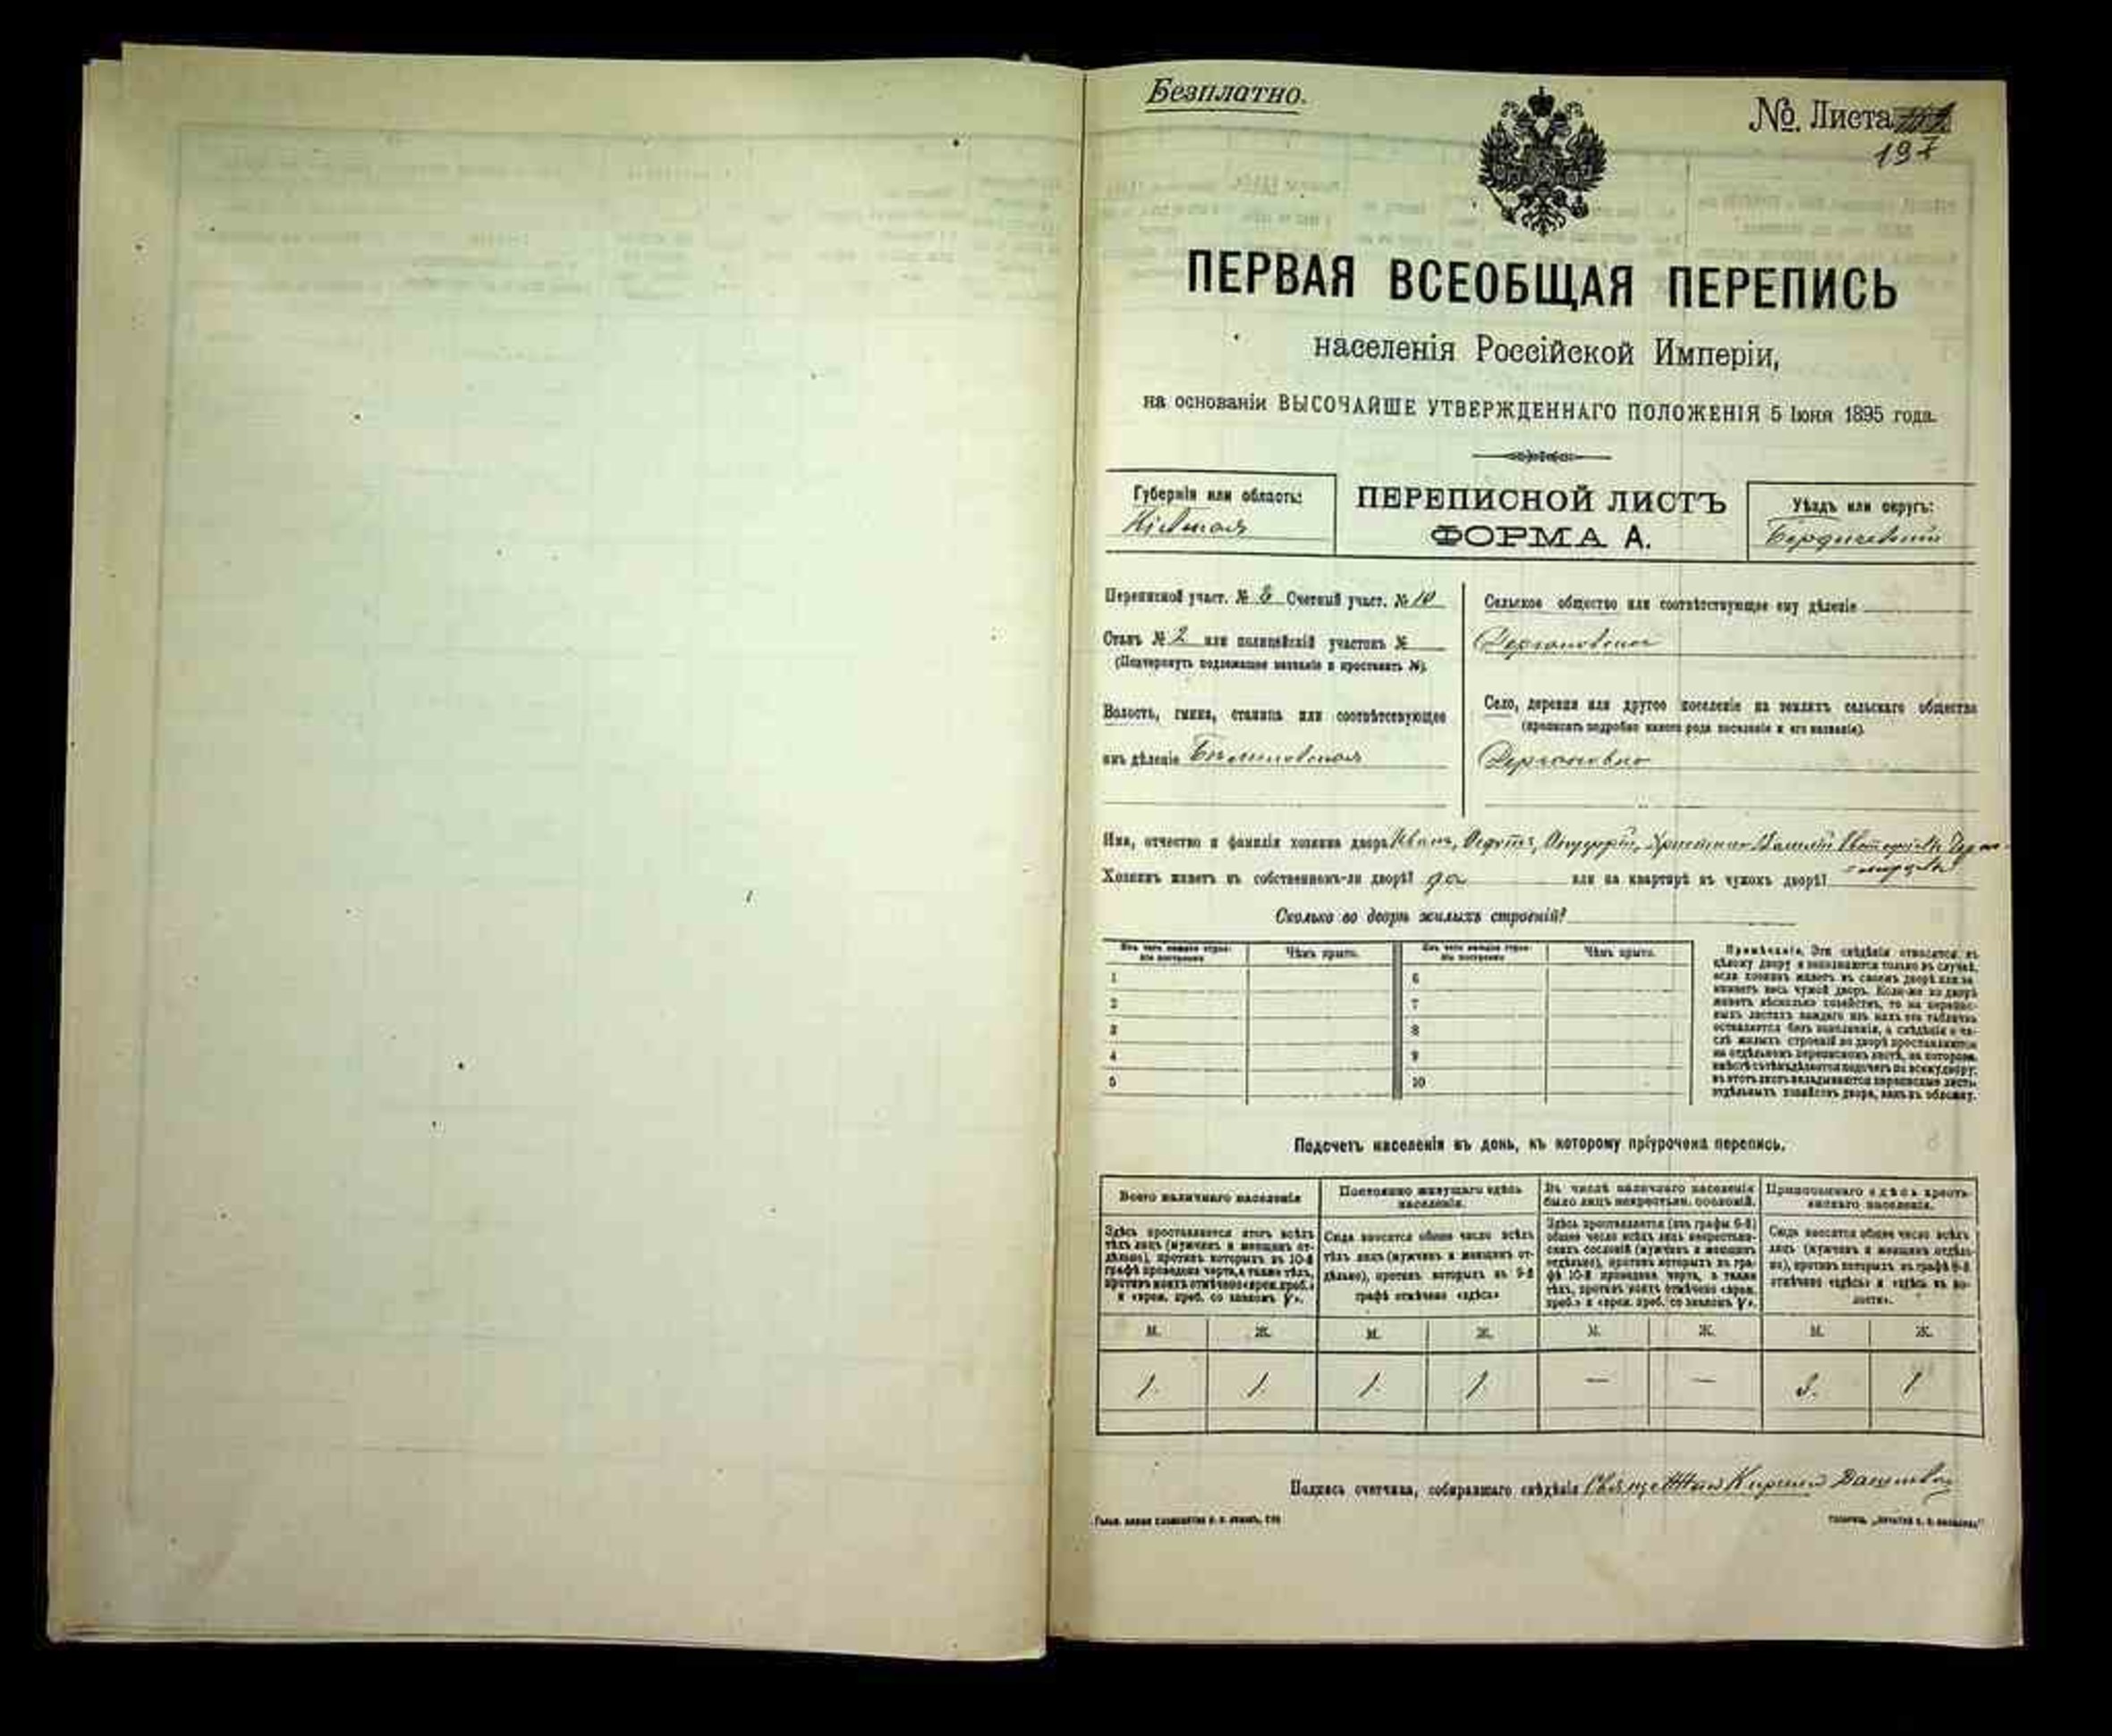 Безплатно.
№. Листа
197
ПЕРВАЯ ВСЕОБЩАЯ ПЕРЕПИСЬ
населенія Россійской Имперіи,
на основаніи ВЫСОЧАЙШЕ УТВЕРЖДЕННАГО ПОЛОЖЕНІЯ 5 Іюня 1895 года.
Губернія или область:
Кіевская
ПЕРЕПИСНОЙ ЛИСТЪ
ФОРМА А.
Уѣздъ или округъ:
Бердичевскій
Переписной участ. № 8 Счетный участ. № 10
Станъ № 2 или полицейскій участокъ №
(Подчеркнуть подлежащее названіе и проставить №).
Волость, гмина, станица или соотвѣтствующее
имъ дѣленіе
Сельское общество или соотвѣтствующее ему дѣленіе
Село, деревня или другое поселеніе на земляхъ сельскаго общества
(прописать подробно какого рода поселеніе и его названіе).
Имя, отчество и фамилія хозяина двора Иванъ,
Хозяинъ живетъ въ собственномъ-ли дворѣ? да или на квартирѣ въ чужомъ дворѣ?
Сколько во дворѣ жилыхъ строеній?
Изъ чего каждое строеніе построено Чѣмъ крыто. Изъ чего каждое строеніе построено Чѣмъ крыто.
1 6
2 7
3 8
4 9
5 10
Примѣчаніе. Эти свѣдѣнія относятся къ
цѣлому двору и заполняются только въ случаѣ,
если хозяинъ живетъ въ своемъ дворѣ или за-
нимаетъ весь чужой дворъ. Если же во дворѣ
живетъ нѣсколько хозяйствъ, то на перепис-
ныхъ листахъ каждаго изъ нихъ эта табличка
оставляется безъ заполненія, а свѣдѣнія о чи-
слѣ жилыхъ строеній во дворѣ проставляются
на отдѣльномъ переписномъ листѣ, на которомъ
вмѣстѣ съ тѣмъ дѣлается подсчетъ по всему двору;
въ этотъ листъ вкладываются переписные листы
отдѣльныхъ хозяйствъ двора, какъ въ обложку.
Подсчетъ населенія въ день, къ которому пріурочена перепись.
Всего наличнаго населенія
Здѣсь проставляется итогъ всѣхъ
тѣхъ лицъ (мужчинъ и женщинъ от-
дѣльно), противъ которыхъ въ 10-й
графѣ проведена черта, а также тѣхъ,
противъ коихъ отмѣчено «врем. преб.»
и «врем. преб. со знакомъ V».
Постоянно живущаго здѣсь
населенія.
Сюда вносится общее число всѣхъ
тѣхъ лицъ (мужчинъ и женщинъ от-
дѣльно), противъ которыхъ въ 9-й
графѣ отмѣчено «здѣсь»
Въ числѣ наличнаго населенія
было лицъ некрестьян. сословій.
Здѣсь проставляется (изъ графы 6-й)
общее число всѣхъ лицъ некрестьян-
скихъ сословій (мужчинъ и женщинъ
отдѣльно), противъ которыхъ въ гра-
фѣ 10-й проведена черта, а также
тѣхъ, противъ коихъ отмѣчено «врем.
преб.» и «врем. преб. со знакомъ V».
Приписаннаго здѣсь кресть-
янскаго населенія.
Сюда вносится общее число всѣхъ
лицъ (мужчинъ и женщинъ отдѣль-
но), противъ которыхъ въ графѣ 8-й
отмѣчено «здѣсь» и «здѣсь въ во-
лости».
М. Ж. М. Ж. М. Ж. М. Ж.
1. 1. 1. 1 — — 1
Подпись счетчика, собиравшаго свѣдѣнія Кирилл